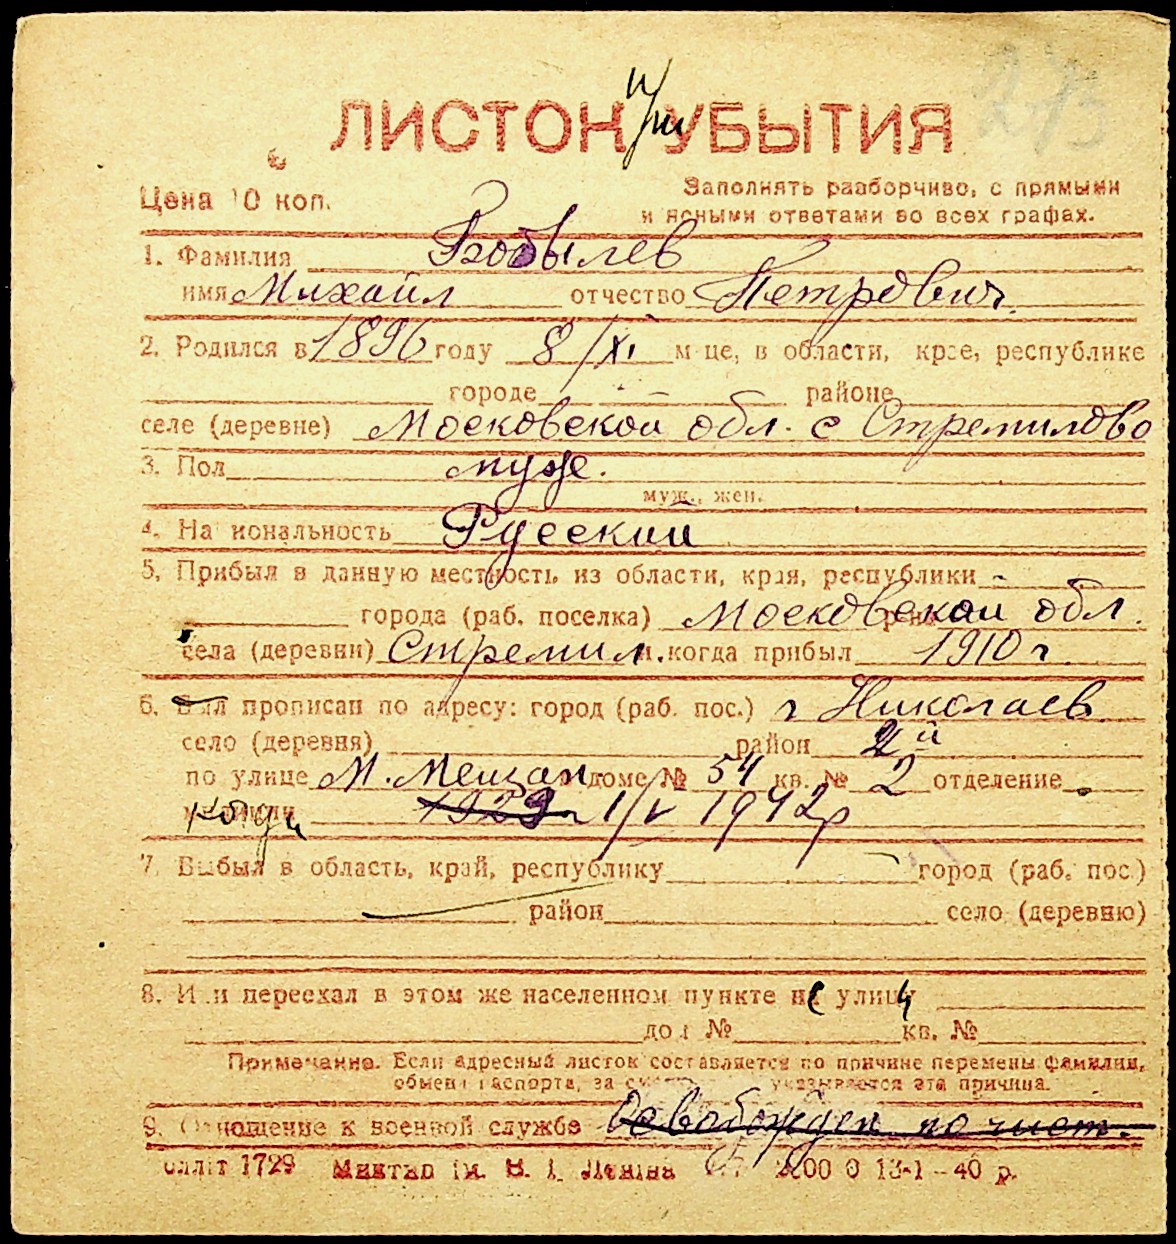 273
ЛИСТОК УБЫТИЯ
Цена 10 коп.
Заполнять разборчиво, с прямыми
и ясными ответами во всех графах.
1. Фамилия Бобылев
имя Михаил отчество Петрович
2. Родился в 1896 году 8/XI м-це, в области, крае, республике
городе районе
селе (деревне) Московской обл. с Стремилово
3. Пол муж.
муж., жен.
4. Национальность Русский
5. Прибыл в данную местность из области, края, республики
города (раб. поселка) Московской обл.
села (деревни) Стремил. и когда прибыл 1910 г
6. Был прописан по адресу: город (раб. пос.) г Николаев
село (деревня) район 2й
по улице М. Мещан в доме № 54 кв. № 2 отделение
милиции когда 1929 г 1/V 1942 р
7. Выбыл в область, край, республику город (раб. пос.)
район село (деревню)
8. Или переехал в этом же населенном пункте на улицу
дом № кв. №
Примечание. Если адресный листок составляется по причине перемены фамилии,
обмена паспорта, за указывается эта причина.
9. Отношение к военной службе Освобожден по чист.
Облліт 1729 ім. В. І. Леніна 13-1-40 р.